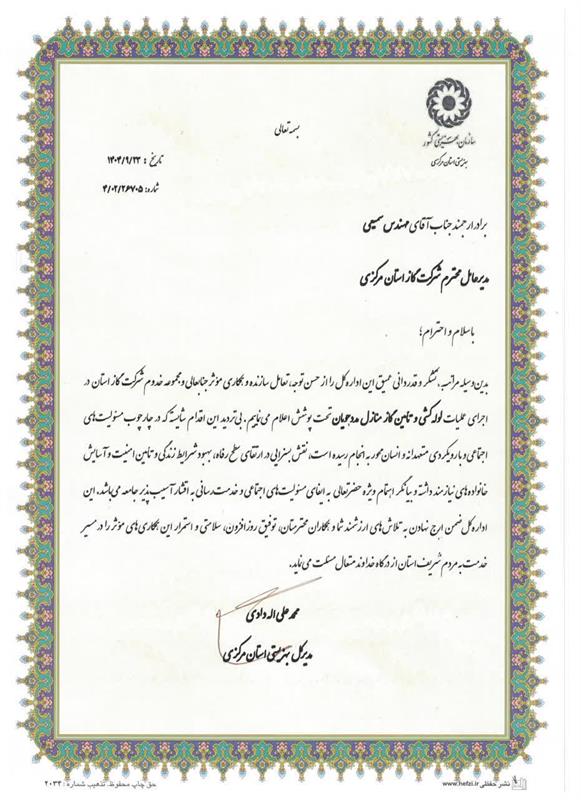 بسمه تعالی
سازمان بهزیستی کشور
بهزیستی استان مرکزی
تاریخ : ۱۴۰۴/۹/۲۳
شماره: ۴/۰۲/۲۶۷۰۵
برادر ارجمند جناب آقای مهندس سمیعی
مدیرعامل محترم شرکت گاز استان مرکزی
با سلام و احترام؛
بدین وسیله مراتب تشکر و قدردانی عمیق این اداره کل را از حسن توجه، تعامل سازنده و همکاری مؤثر جنابعالی و مجموعه خدوم شرکت گاز استان در
اجرای عملیات لوله کشی و تامین گاز منازل مددجویان تحت پوشش اعلام می نمایم. بی تردید این اقدام شایسته که در چارچوب مسئولیت های
اجتماعی و با رویکردی متعهدانه و انسان محور به انجام رسیده است، نقش بسزایی در ارتقای سطح رفاه، بهبود شرایط زندگی و تامین امنیت و آسایش
خانواده های نیازمند داشته و بیانگر اهتمام ویژه حضرتعالی به ایفای مسئولیت های اجتماعی و خدمت رسانی به اقشار آسیب پذیر جامعه می باشد. این
اداره کل ضمن ارج نهادن به تلاش های ارزشمند شما و همکاران محترمتان، توفیق روزافزون، سلامتی و استمرار این همکاری های مؤثر را در مسیر
خدمت به مردم شریف استان از درگاه خداوند متعال مسئلت می نماید.
محمد علی اله دادی
مدیرکل بهزیستی استان مرکزی
نشر حفظی www.hefzi.ir
حق چاپ محفوظ. تذهیب شماره : ۲۰۳۴